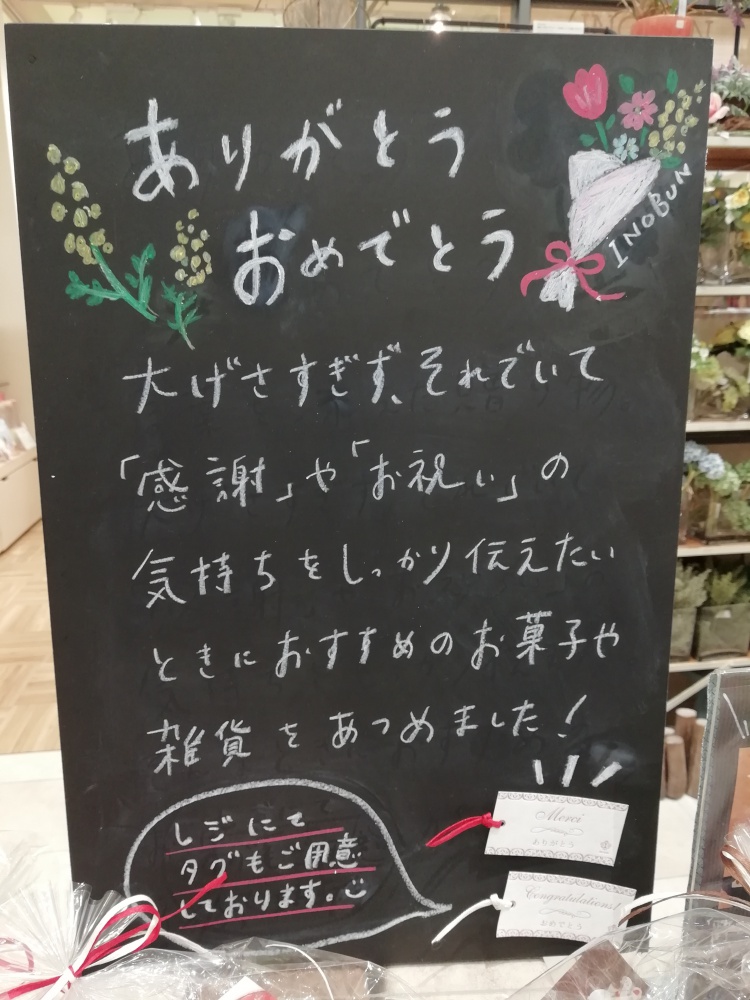 ありがとう
おめでとう
INOBUN
大げさすぎず、それでいて
「感謝」や「お祝い」の
気持ちをしっかり伝えたい
ときにおすすめのお菓子や
雑貨をあつめました!
レジにて
タグもご用意
しております。
Merci
ありがとう
Congratulations!
おめでとう